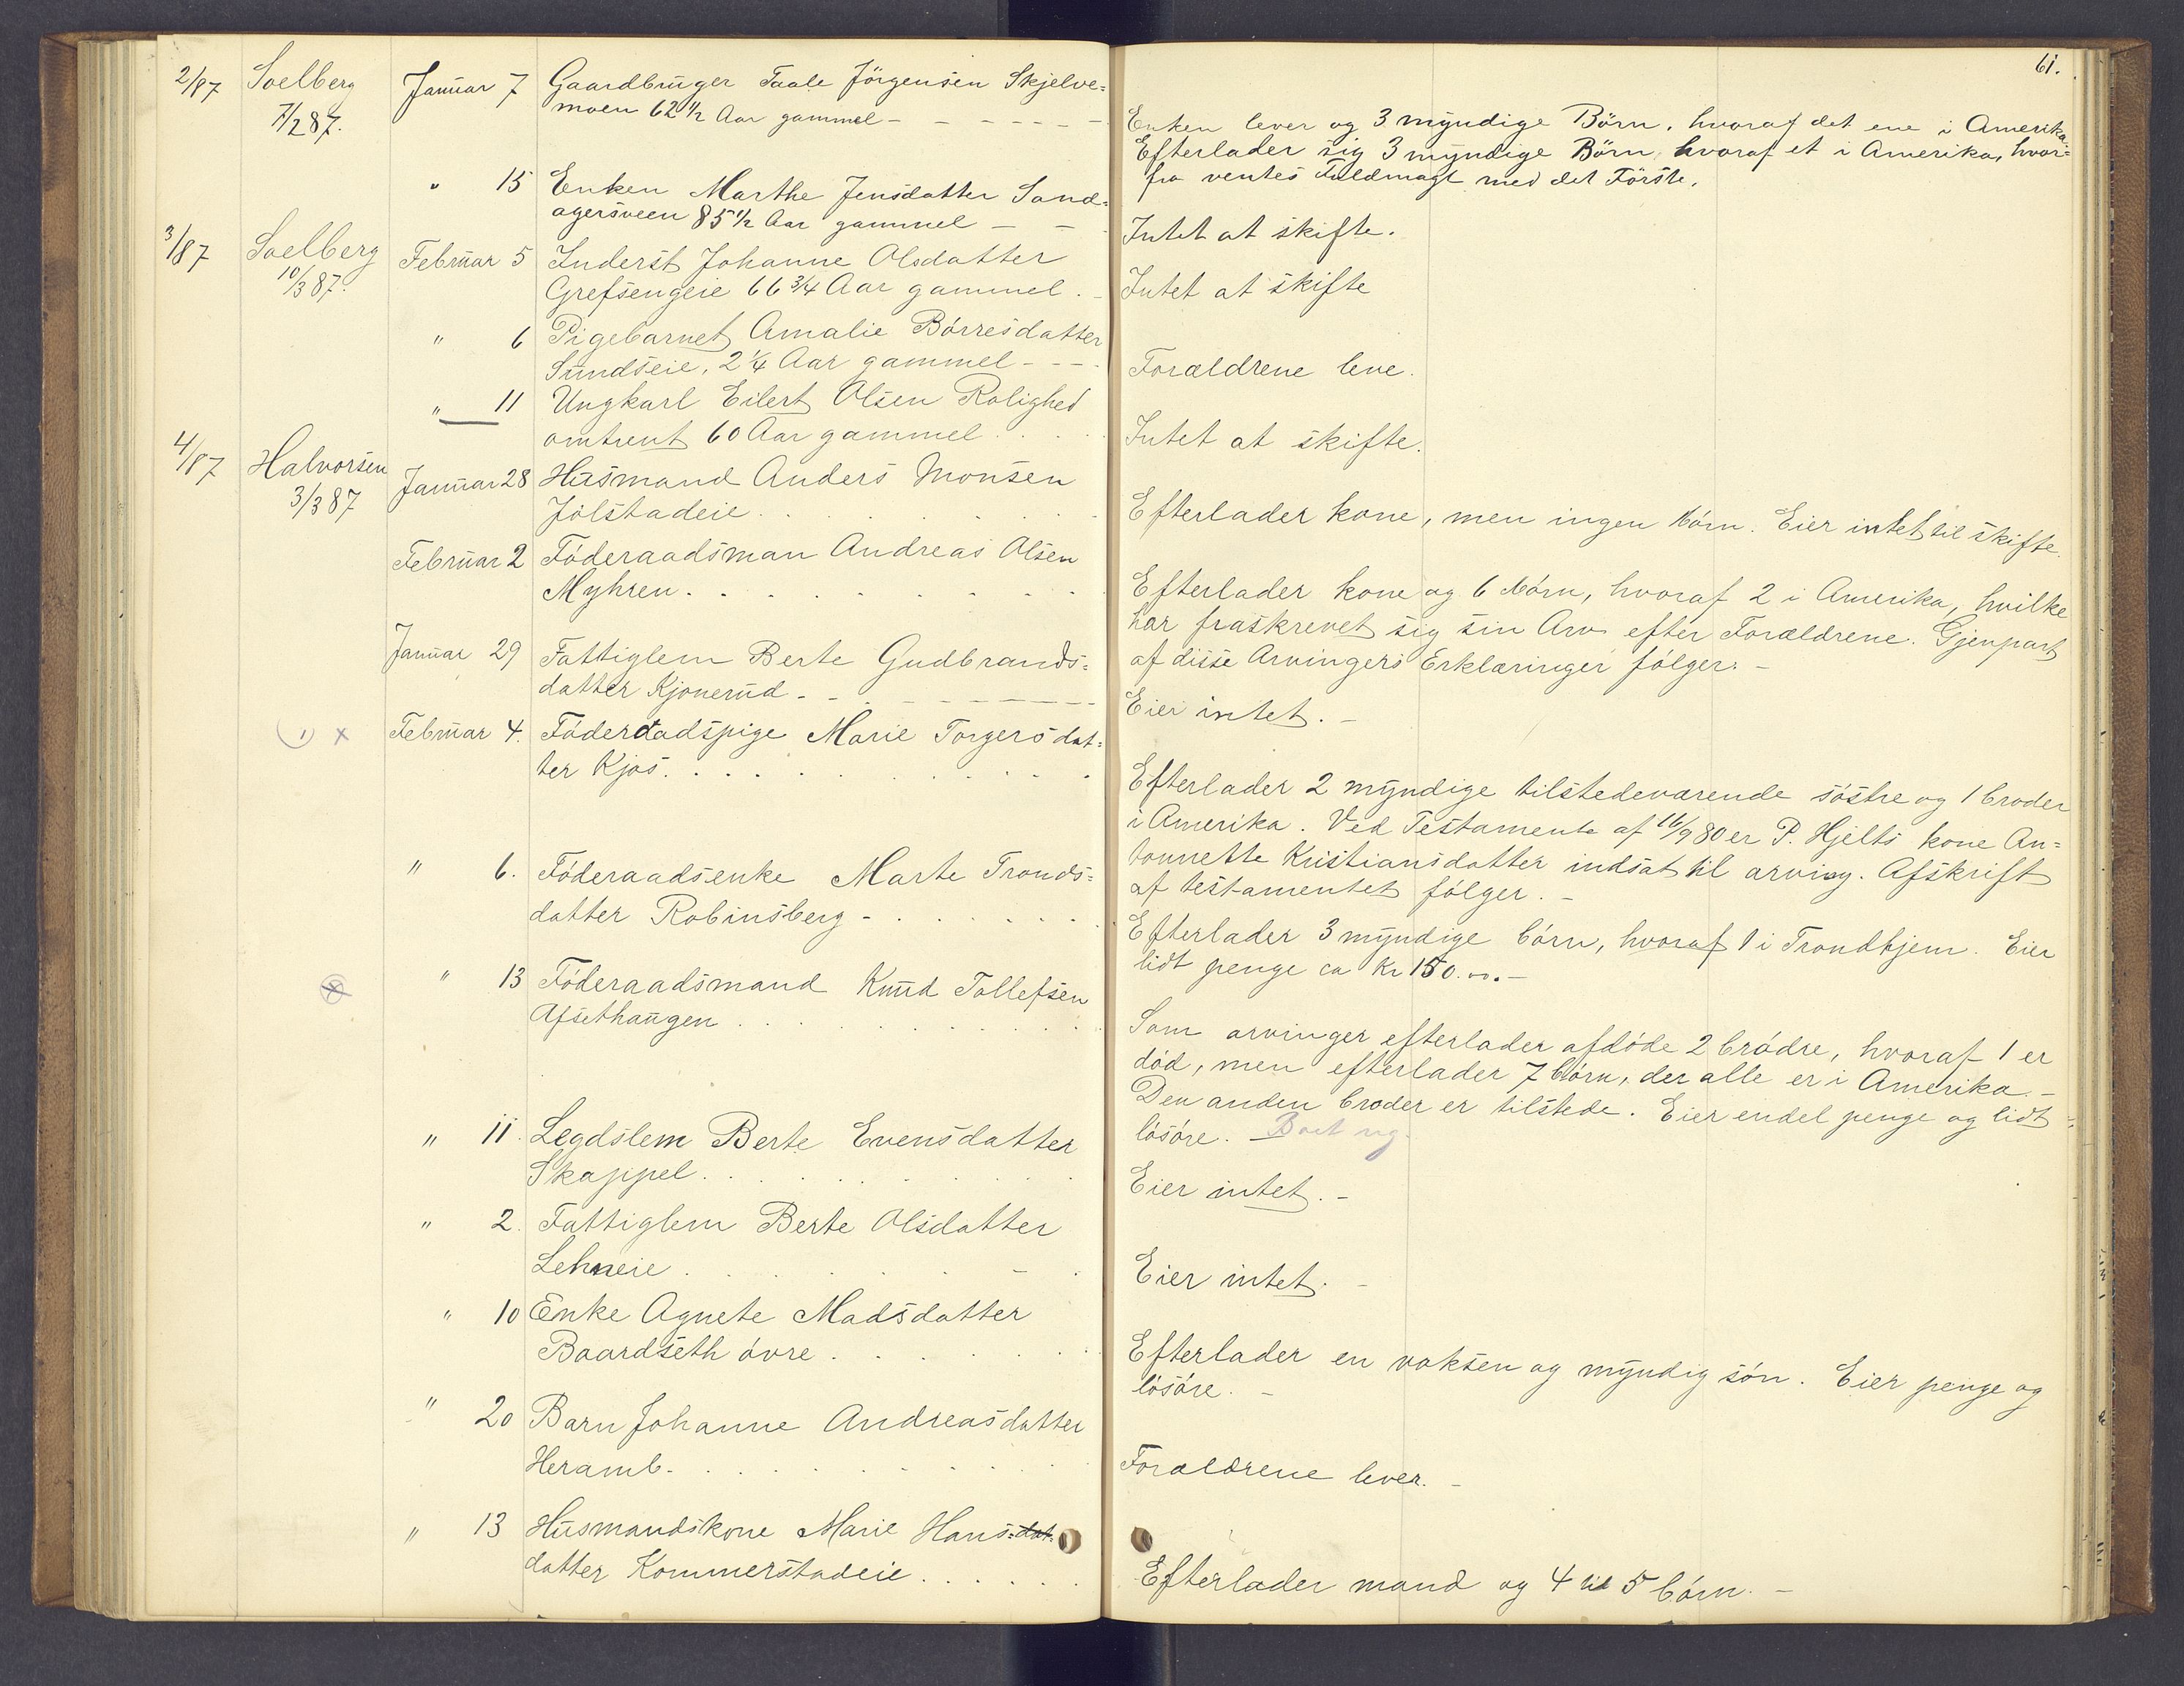 61.
2/87 Soelberg Januar 7 Gaardbruger Taale Jörgensen Skjelve=
7/2 87. moen 62 1/2 Aar gammel - - - - - - -
Enken lever og 3 myndige Börn, hvoraf det ene i Amerika.
Efterlader sig 3 myndige Börn, hvoraf et i Amerika, hvor=
fra ventes Fuldmagt med det Förste.
" 15 Enken Marthe Jensdatter Sand=
agersveen 85 1/2 Aar gammel - -
Intet at skifte.
3/87 Soelberg Februar 5 Inderst Johanne Olsdatter
10/3 87. Grefsengeie 66 3/4 Aar gammel. -
Intet at skifte
" 6 Pigebarnet Amalie Börresdatter
Sundseie, 2 1/4 Aar gammel - - -
Forældrene leve.
" 11 Ungkarl Eilert Olsen Rolighed
omtrent 60 Aar gammel . . . .
Intet at skifte.
4/87 Halvorsen Januar 28 Husmand Anders Monsen
3/3 87 Jölstadeie . . . . . . .
Efterlader kone, men ingen börn. Eier intet til skifte.
Februar 2 Föderaadsman Andreas Olsen
Myhren . . . . . . . . .
Efterlader kone og 6 börn, hvoraf 2 i Amerika, hvilke
har fraskrevet sig sin Arv efter Forældrene. Gjenpart
af disse Arvingers Erklæringer følger. -
Januar 29 Fattiglem Berte Gudbrands=
datter Kjonerud - - - - - - - -
Eier intet. -
1 x Februar 4. Föderaadspige Marie Torgersdat=
ter Kjos. . . . . . . . . .
Efterlader 2 myndige tilstedeværende söstre og 1 broder
i Amerika. Ved Testamente af 16/9 80 er P. Hjelts kone An=
tonnette Kristiansdatter indsat til arving. Afskrift
af testamentet fölger. -
" 6. Föderaadsenke Marte Tronds=
datter Robinsberg - . . . . . .
Efterlader 3 myndige börn, hvoraf 1 i Trondhjem. Eier
lidt penge ca Kr 150.00. -
x " 13 Föderaadsmand Knud Tollefsen
Afsethaugen . . . . . . . . .
Som arvinger efterlader afdöde 2 brödre, hvoraf 1 er
död, men efterlader 7 börn, der alle er i Amerika. -
Den anden broder er tilstede. Eier endel penge og lidt
lösöre. - Boet
" 11. Legdslem Berte Evensdatter
Skappel . . . . . . . . .
Eier intet. -
" 2. Fattiglem Berte Olsdatter
Lehneie . . . . . . . .
Eier intet. -
" 10 Enke Agnete Madsdatter
Baardseth övre . . . . . . .
Efterlader en voksen og myndig sön. Eier penge og
lösöre. -
" 20 Barn Johanne Andreasdatter
Heramb. . . . . . . . .
Forældrene lever. -
" 13 Husmandskone Marie Hans=dat=
datter Kommerstadeie . . . . . .
Efterlader mand og 4 til 5 börn. -